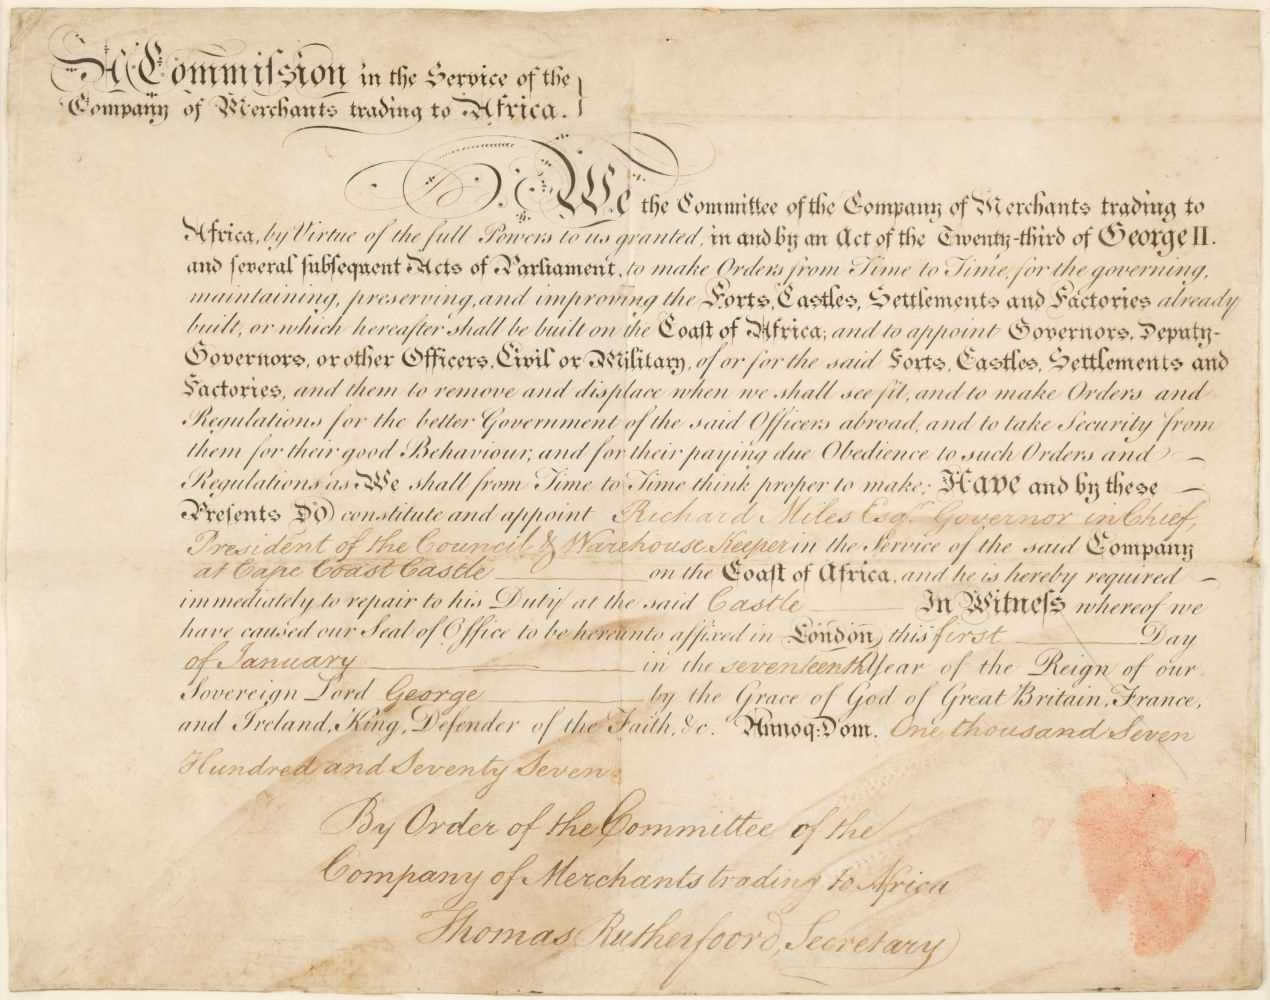 A Commission in the Service of the
Company of Merchants trading to Africa.
We the Committee of the Company of Merchants trading to
Africa, by Virtue of the full Powers to us granted, in and by an Act of the Twenty-third of George II.
and several subsequent Acts of Parliament, to make Orders from Time to Time, for the governing,
maintaining, preserving, and improving the Forts, Castles, Settlements and Factories already
built, or which hereafter shall be built on the Coast of Africa; and to appoint Governors, Deputy-
Governors, or other Officers, Civil or Military, of or for the said Forts, Castles, Settlements and
Factories, and them to remove and displace when we shall see fit, and to make Orders and
Regulations for the better Government of the said Officers abroad, and to take Security from
them for their good Behaviour, and for their paying due Obedience to such Orders and
Regulations as We shall from Time to Time think proper to make; Have and by these
Presents Do constitute and appoint Richard Miles Esqr. Governor in Chief,
President of the Council & Warehouse Keeper in the Service of the said Company
at Cape Coast Castle on the Coast of Africa, and he is hereby required
immediately to repair to his Duty at the said Castle In Witness whereof we
have caused our Seal of Office to be hereunto affixed in London, this first Day
of January in the seventeenth Year of the Reign of our
Sovereign Lord George by the Grace of God of Great Britain, France,
and Ireland, King, Defender of the Faith, &c. Annoq: Dom. One thousand Seven
Hundred and Seventy Seven.
By Order of the Committee of the
Company of Merchants trading to Africa
Thomas Rutherfoord, Secretary